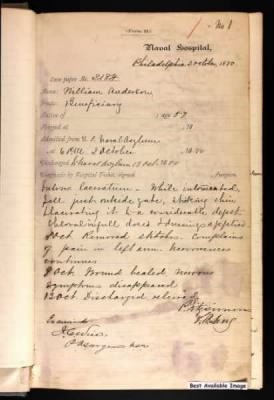 No 1
(Form H.)
Naval Hospital,
Philadelphia 2 October, 1880
Case paper No. 2184
Name: William Anderson
Rank: Beneficiary
Native of age 57
Shipped at , 18
Admitted from U. S. Naval Asylum
6 P.M. 2 October 1880
Discharged to Naval Asylum 13 Oct. 1880
Diagnosis by Hospital Ticket, signed , Surgeon.
Vulnus laceratum - While intoxicated,
fell just outside gate, striking chin
lacerating it to a considerable depth.
dressings applied
Oct Removed stitches. Complains
of pain in left arm. nervousness
continues
9 Oct Wound healed, nervous
symptoms disappeared
13 Oct. Discharged relieved
Examined
Best Available Image